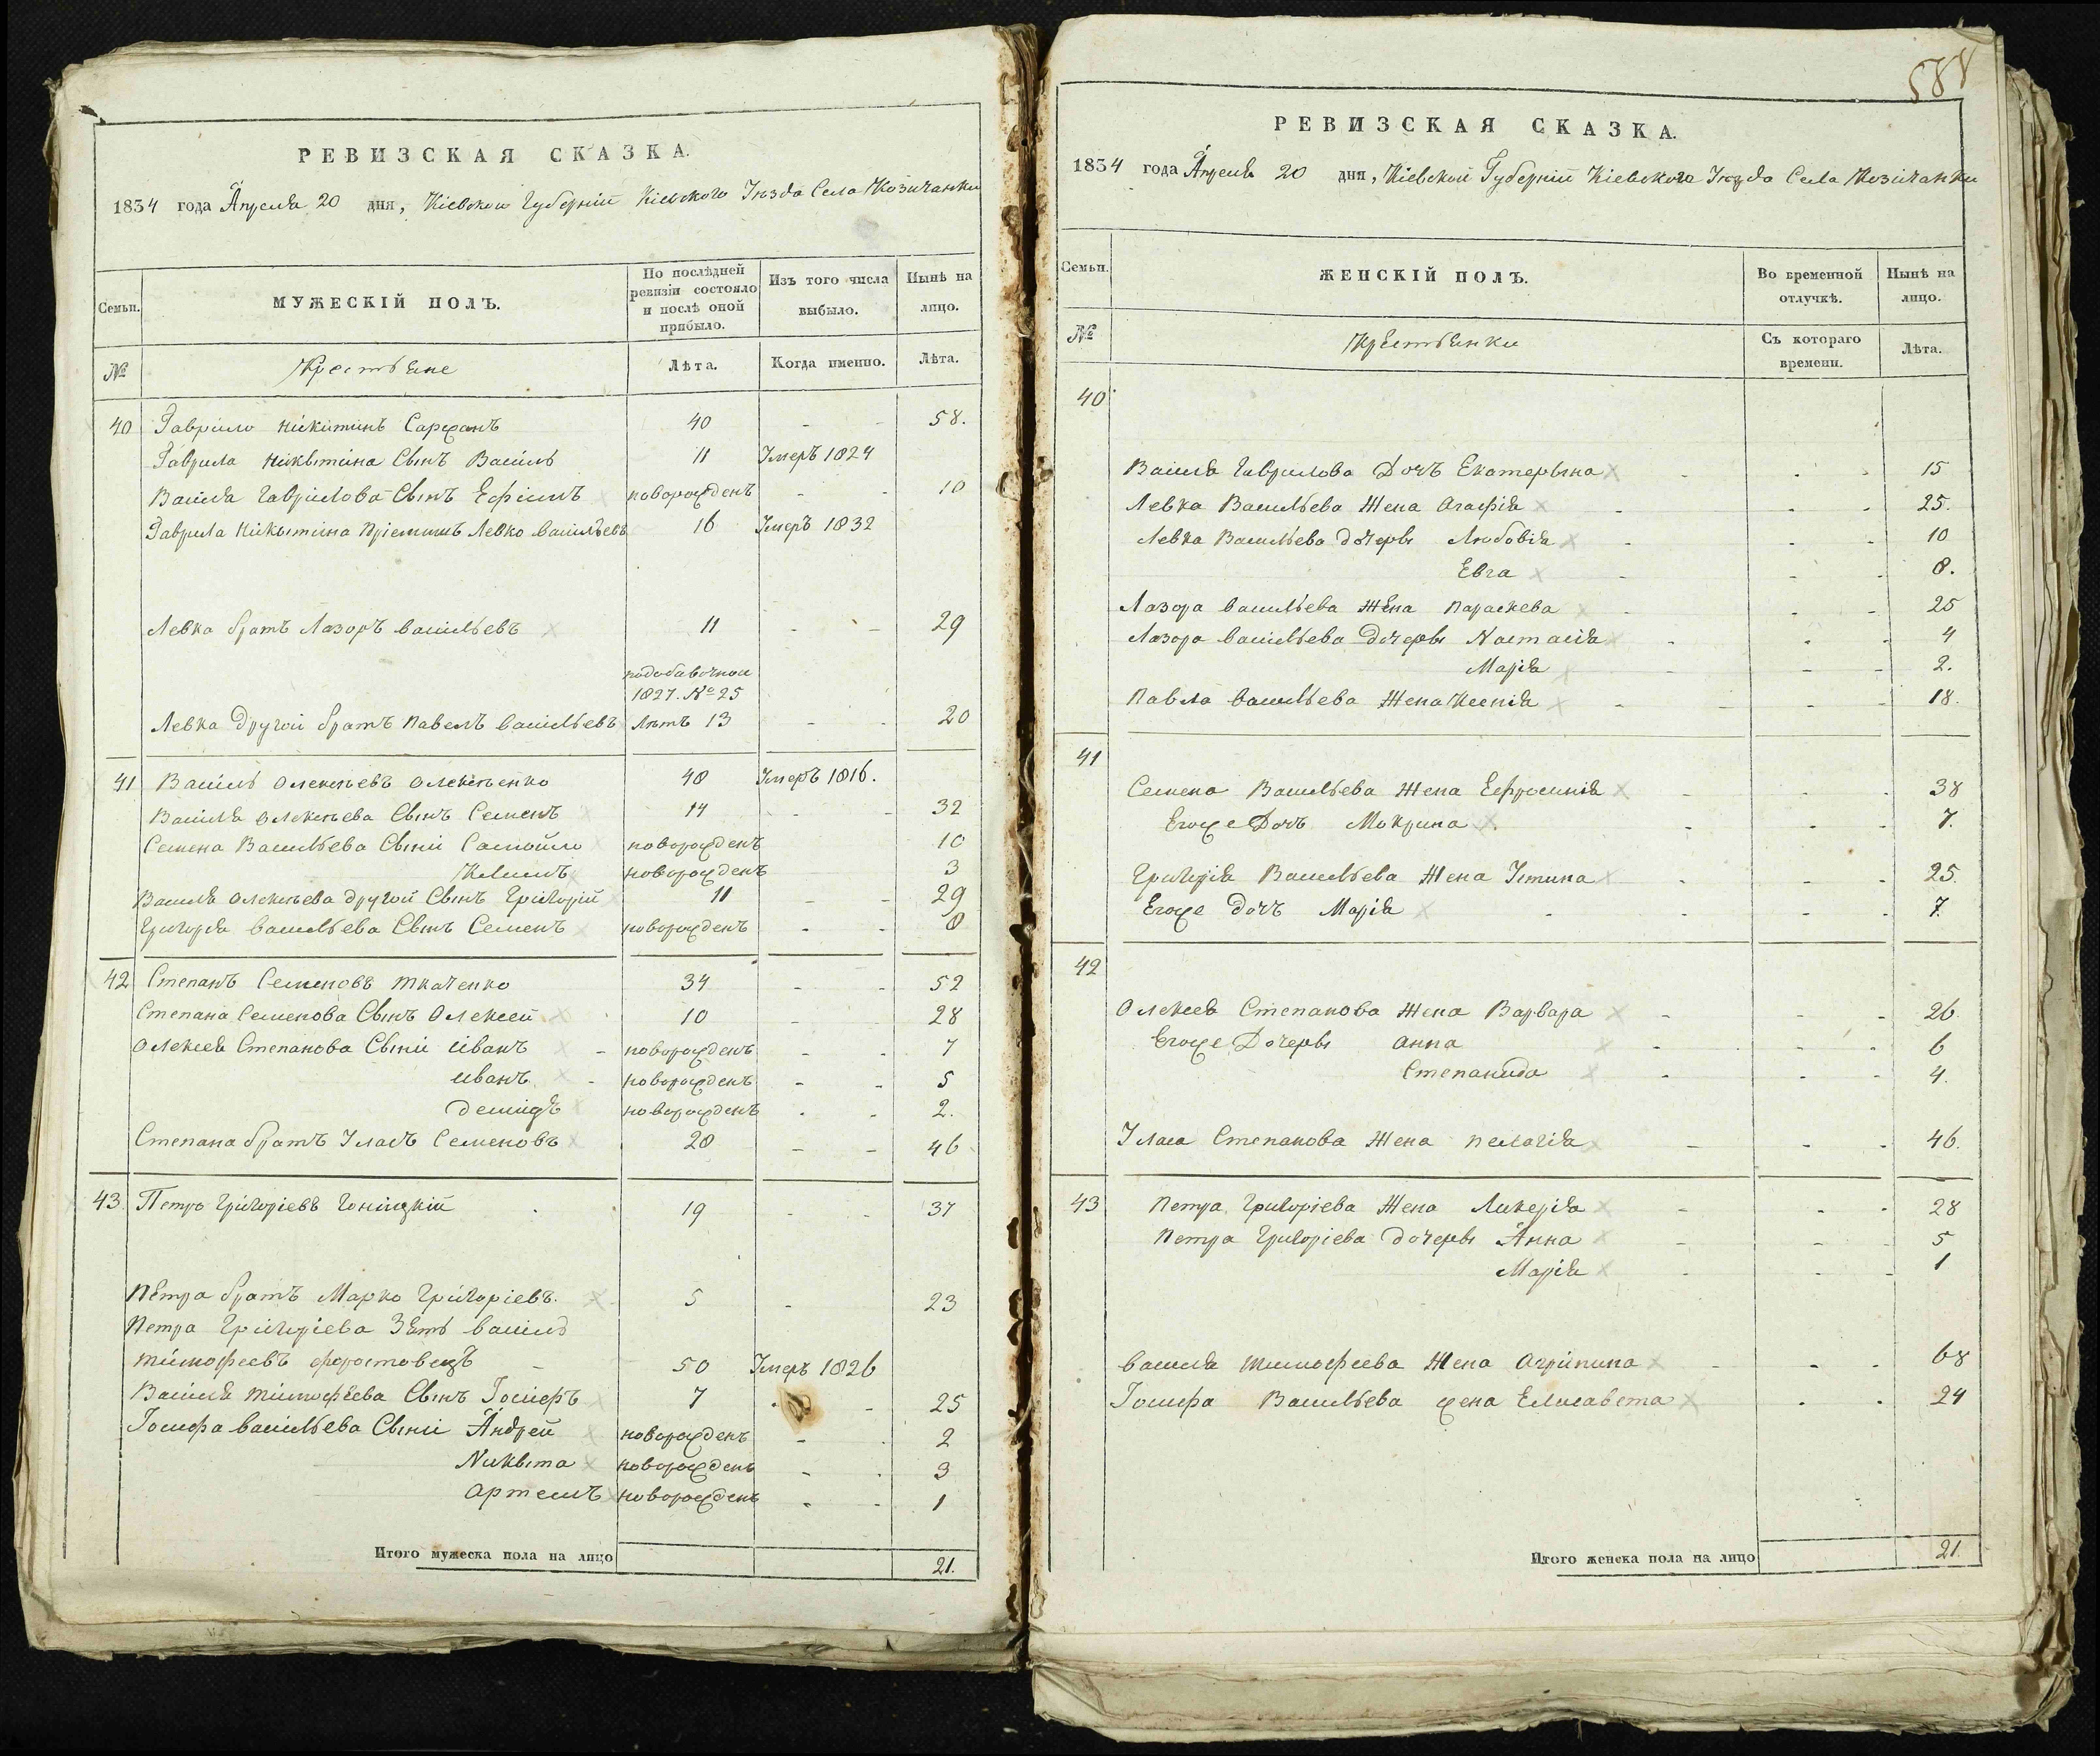 РЕВИЗСКАЯ СКАЗКА.
1834 года Апреля 20 дня, Кіевской Губерніи Кіевского Уезда Села Козичанки
Семьи.
МУЖЕСКІЙ ПОЛЪ.
По послѣдней ревизіи состояло и послѣ оной прибыло.
Изъ того числа выбыло.
Нынѣ на лицо.
№
Крестьяне
Лѣта.
Когда именно.
Лѣта.
40 Гаврило Никитинъ 40 - - 58.
Гаврила Никытина Сынъ Василь 11 Умеръ 1824
Василя Гаврилова Сынъ Ефимъ новорожденъ - - 10
Гаврила Никытина Пріемишъ Левко Васильевъ 16 Умеръ 1832
Левка братъ Лазоръ Васильевъ 11 - - 29
подобавочной
1827. № 25
Левка другой братъ Павелъ Васильевъ Лѣтъ 13 - - 20
41 Василь Олексѣевъ Олексѣенко 48 Умеръ 1816.
Василя Олексѣева Сынъ Семенъ 14 - - 32
Семена Васильева Сыни Самойло новорожденъ 10
Климъ новорожденъ 3
Василя Олексѣева другой Сынъ Григорій 11 - - 29
Григорія Васильева Сынъ Семенъ новорожденъ - - 8
42 Степанъ Семеновъ Ткаченко 34 - - 52
Степана Семенова Сынъ Олексей 10 - - 28
Олексея Степанова Сыни Иванъ - новорожденъ - - 7
Иванъ - новорожденъ - - 5
Демидъ новорожденъ - - 2.
Степана братъ Уласъ Семеновъ 28 - - 46
43. Петро Григоріевъ Гоницкій 19 - - 37
Петра братъ Марко Григоріевъ. 5 - 23
Петра Григоріева Зять Василь
Тимофеевъ Форостовецъ - 50 Умеръ 1826
Василя Тимофеева Сынъ Іосифъ 7 - - 25
Іосифа Васильева Сыни Андрей новорожденъ - - 2
Никыта новорожденъ - - 3
Артемъ новорожденъ - - 1
Итого мужеска пола на лицо 21.
588
РЕВИЗСКАЯ СКАЗКА.
1834 года Апреля 20 дня, Кіевской Губерніи Кіевского Уезда Села Козичанки
Семьи.
ЖЕНСКІЙ ПОЛЪ.
Во временной отлучкѣ.
Нынѣ на лицо.
№
Крестьянки
Съ котораго времени.
Лѣта.
40
Василя Гаврилова Дочъ Екатерына - - - 15
Левка Васильева Жена Агафія - - - 25.
Левка Васильева дочеры Любовія - - - 10
Евга - - - 8.
Лазора Васильева Жена Параскева - - - 25
Лазора Васильева Дочеры Настасія - - - 4
Марія - - - 2.
Павла Васильева Жена Ксенія - - - 18.
41
Семена Васильева Жена Ефросинія - - - 38
Егоже Дочъ Мокрина - - - 7.
Григорія Васильева Жена Устина - - - 25.
Егоже дочъ Марія - - - 7.
42
Олексея Степанова Жена Варвара - - - 26.
Егоже Дочеры Анна - - - 6
Степанида - - - 4.
Уласа Степанова Жена Пелагія - - - 46.
43 Петра Григоріева Жена Ликерія - - - 28
Петра Григоріева дочеры Анна - - - 5
Марія - - - 1
Василя Тимофеева Жена Агрипина - - - 68
Іосифа Васильева жена Елисавета - - 24
Итого женска пола на лицо 21.